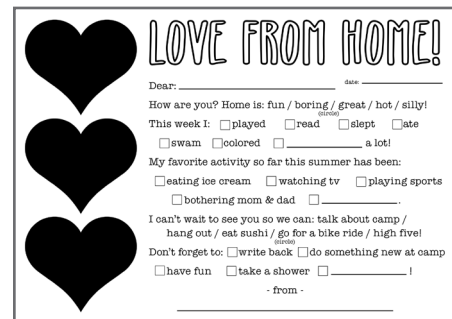 LOVE FROM HOME!
Dear: date:
How are you? Home is: fun / boring / great / hot / silly!
(circle)
This week I: played read slept ate
swam colored a lot!
My favorite activity so far this summer has been:
eating ice cream watching tv playing sports
bothering mom & dad .
I can't wait to see you so we can: talk about camp /
hang out / eat sushi / go for a bike ride / high five!
(circle)
Don't forget to: write back do something new at camp
have fun take a shower !
- from -